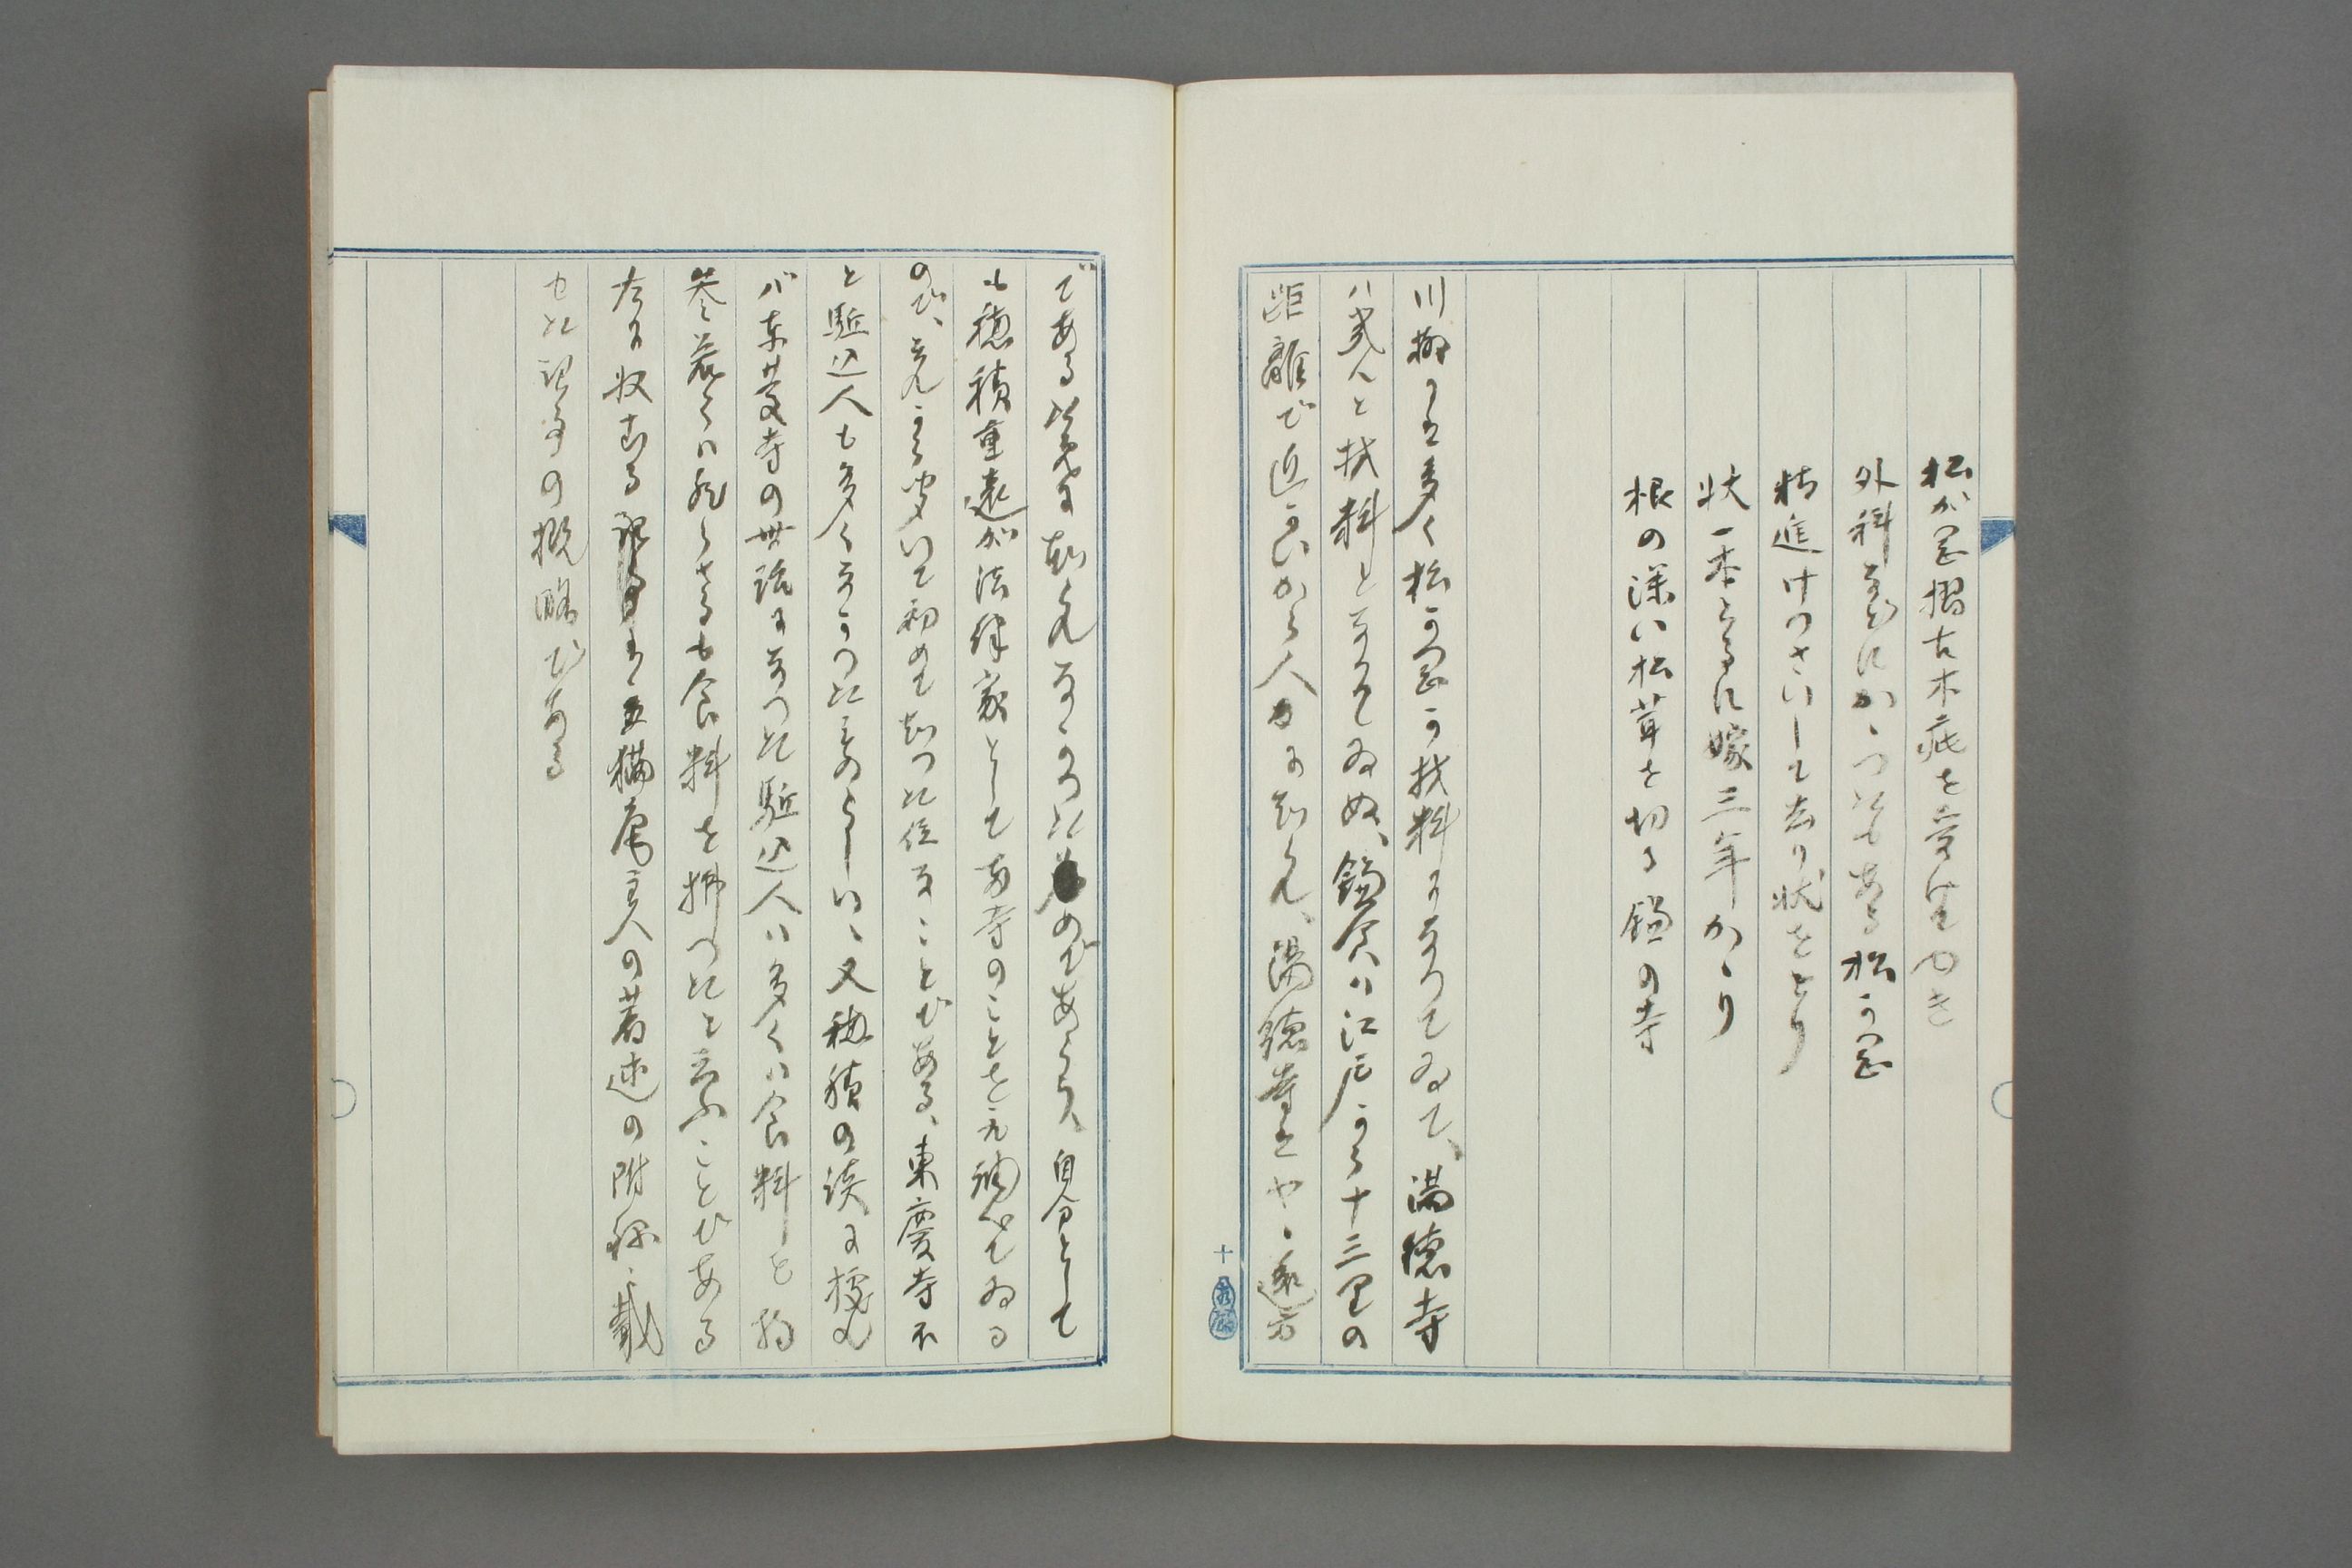 松が岡摺古木疵を笑やき
外科家にかゝつたもある松が岡
精進けつさいして去り状をとり
状一本とるに嫁三年かゝり
根の深い松茸を切る鎌の寺
川柳にも多く松が岡が材料になつてゐて、満徳寺
ハ殆んと材料となつてゐぬ、鎌倉ハ江戸から十三里の
距離で近いから人口に知られ、満徳寺はやゝ遠方
である爲に知られなかつたのであらう、自分として
も穂積重遠が法律家として両寺のことを取調べてゐる
ので、それから聞いて初めて知つた位なことである、東慶寺ホ
と駈込人も多くなかつたものらしい、又穂積の談に據れ
バ東慶寺の世話になつた駈込人ハ多くハ食料を
茶荒くハ然らざるも食料を拂つたと云ふことである
左に収むる は三猫庵主人の著述の附録に載
せた記事の概略である
十